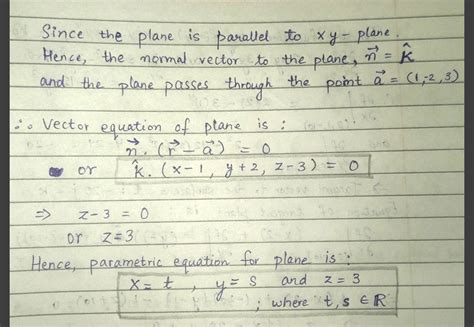 Since the plane is parallel to xy-plane.
Hence, the normal vector to the plane, n⃗ = k̂
and the plane passes through the point a⃗ = (1,-2,3)
∴ Vector equation of plane is :
n⃗ . (r⃗ - a⃗) = 0
or k̂. (x-1, y+2, z-3) = 0
⇒ z-3 = 0
or z=3
Hence, parametric equation for plane is :
x= t , y= s and z = 3
; where t, s ∈ ℝ